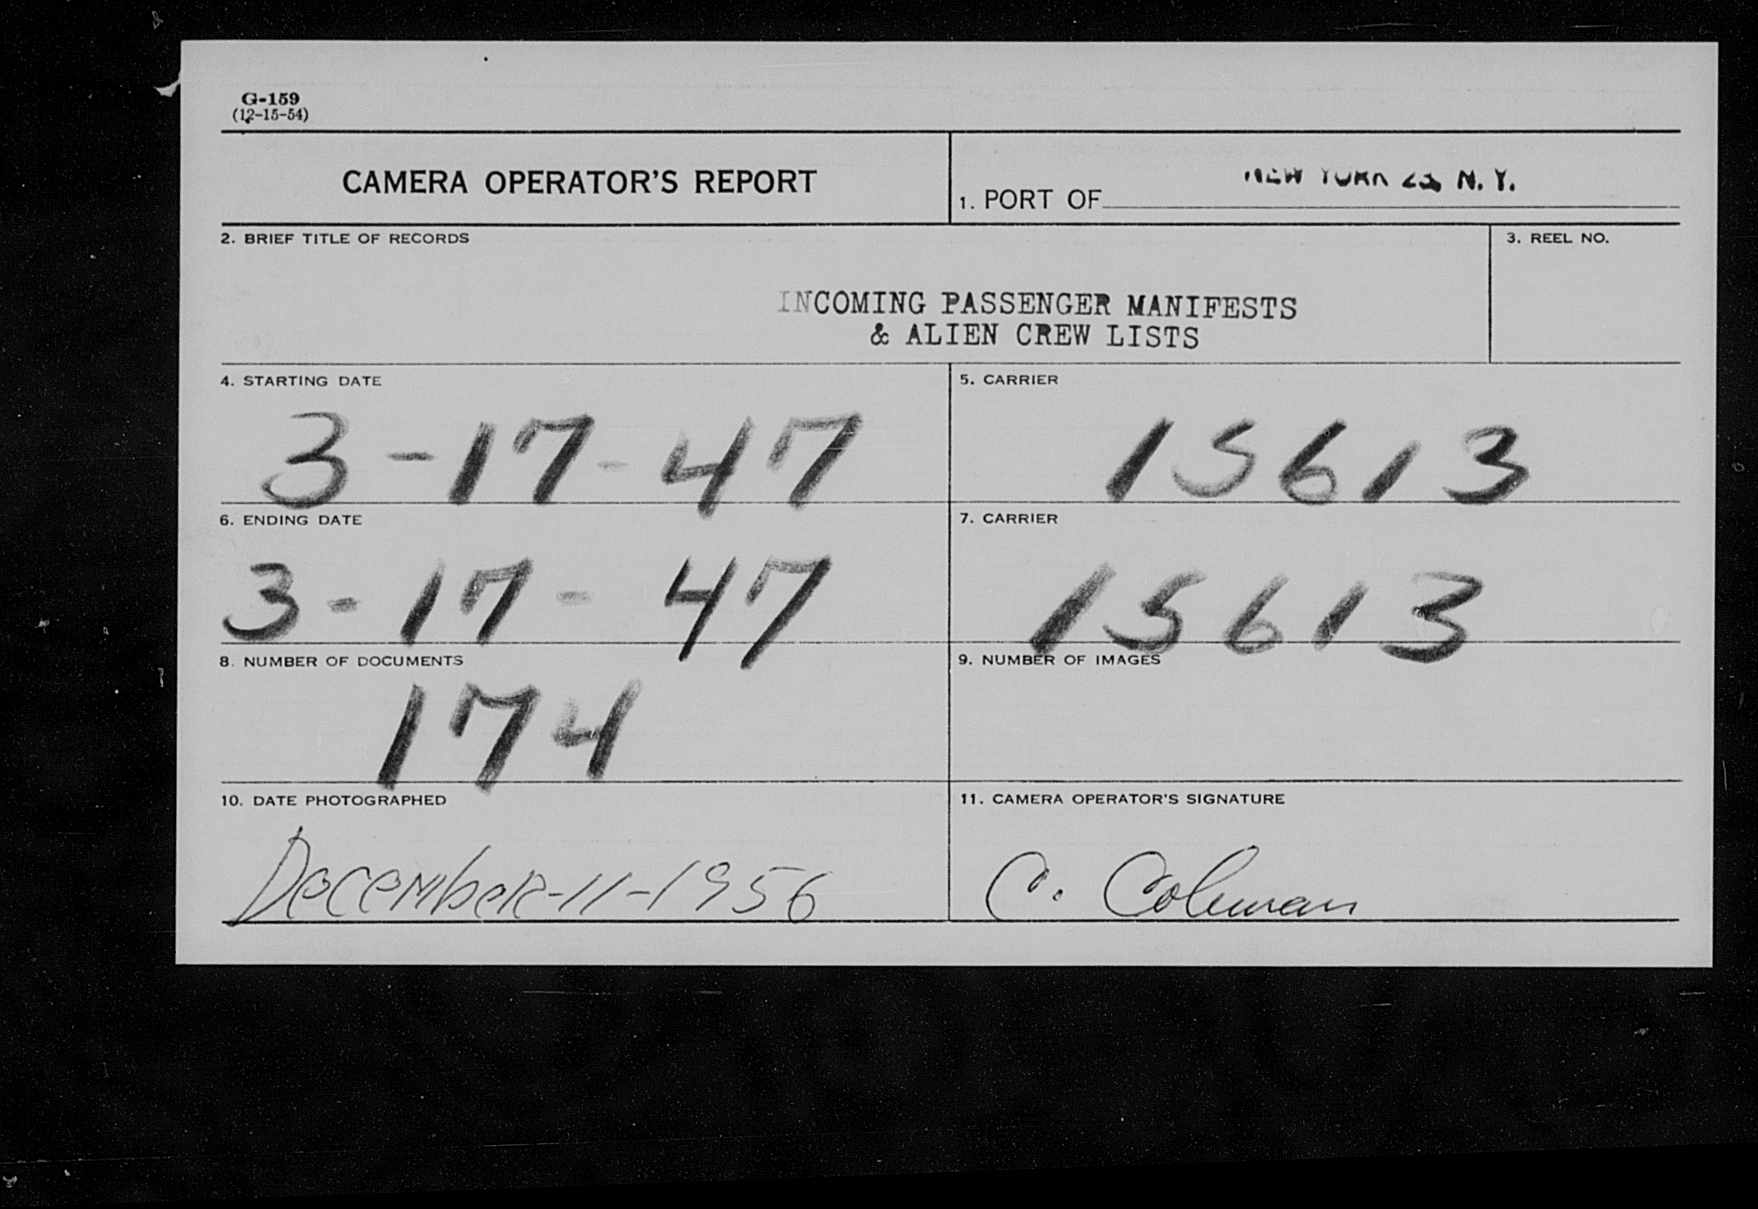 G-159
(12-15-54)
CAMERA OPERATOR'S REPORT
1. PORT OF NEW YORK 23, N. Y.
2. BRIEF TITLE OF RECORDS
3. REEL NO.
INCOMING PASSENGER MANIFESTS
& ALIEN CREW LISTS
4. STARTING DATE
5. CARRIER
3-17-47
15613
6. ENDING DATE
7. CARRIER
3-17-47
15613
8. NUMBER OF DOCUMENTS
9. NUMBER OF IMAGES
174
10. DATE PHOTOGRAPHED
11. CAMERA OPERATOR'S SIGNATURE
December-11-1956
C. Coleman